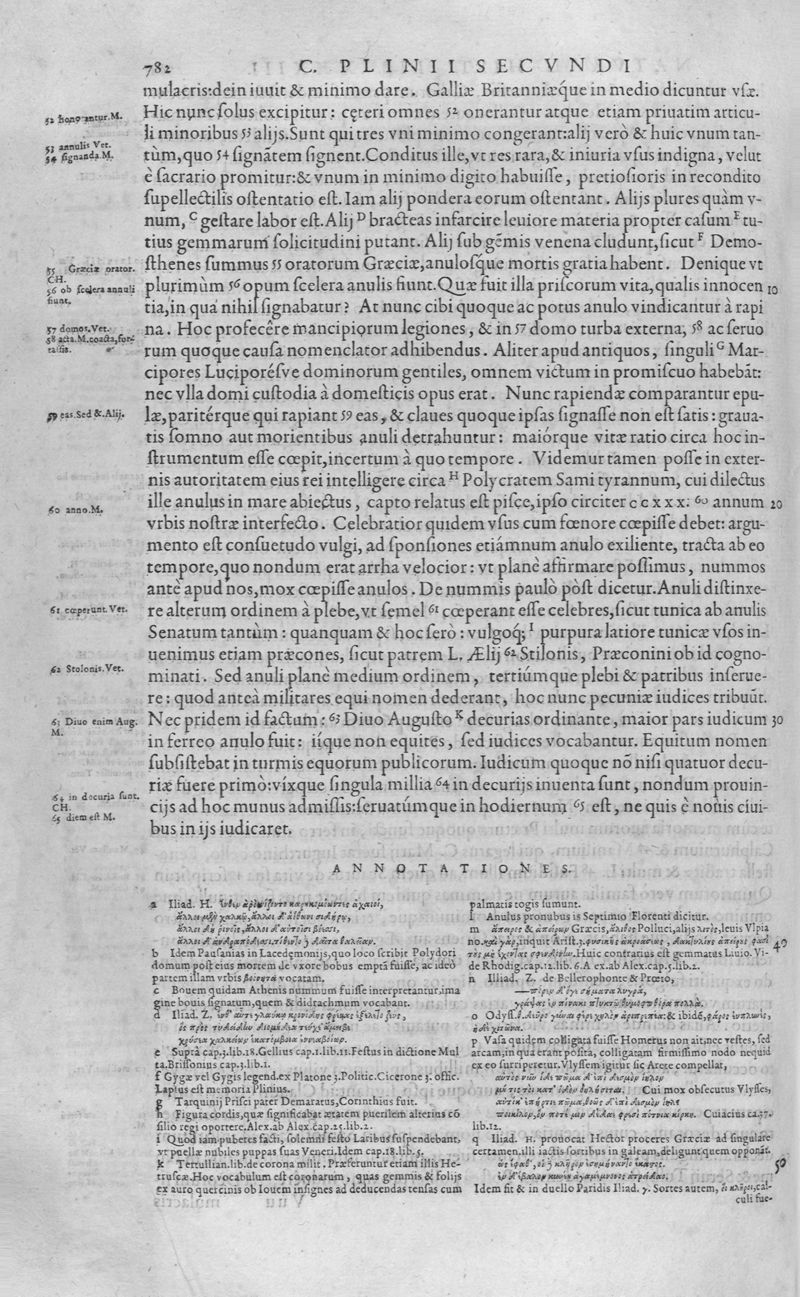 782 C. PLINII SECVNDI
mulacris:dein iuuit & minimo dare. Galliæ Britanniæq́ue in medio dicuntur vſæ.
Hic nunc ſolus excipitur: cęteri omnes 52 onerantur atque etiam priuatim articu-
li minoribus 53 alijs.Sunt qui tres vni minimo congerant:alij verò & huic vnum tan-
tùm,quo 54 ſignātem ſignent.Conditus ille,vt res rara,& iniuria vſus indigna, velut
è ſacrario promitur:& vnum in minimo digito habuiſſe, pretioſioris in recondito
ſupellectilis oſtentatio eſt. Iam alij pondera eorum oſtentant. Alijs plures quàm v-
num, C geſtare labor eſt. Alij D bracteas infarcire leuiore materia propter caſum E tu-
tius gemmarum ſolicitudini putant. Alij ſub gēmis venena cludunt,ſicut F Demo-
ſthenes ſummus 55 oratorum Græciæ,anuloſq́ue mortis gratia habent. Denique vt
plurimùm 56 opum ſcelera anulis fiunt.Quæ fuit illa priſcorum vita,qualis innocen 10
tia,in qua nihil ſignabatur? At nunc cibi quoque ac potus anulo vindicantur à rapi
na. Hoc profecêre mancipiorum legiones, & in 57 domo turba externa, 58 ac ſeruo
rum quoque cauſa nomenclator adhibendus. Aliter apud antiquos, ſinguli G Mar-
cipores Luciporéſve dominorum gentiles, omnem victum in promiſcuo habebāt:
nec vlla domi cuſtodia à domeſticis opus erat. Nunc rapiendæ comparantur epu-
læ,paritérque qui rapiant 59 eas, & claues quoque ipſas ſignaſſe non eſt ſatis: graua-
tis ſomno aut morientibus anuli detrahuntur: maiórque vitæ ratio circa hoc in-
ſtrumentum eſſe cœpit,incertum à quo tempore. Videmur tamen poſſe in exter-
nis autoritatem eius rei intelligere circa H Polycratem Sami tyrannum, cui dilectus
ille anulus in mare abiectus, capto relatus eſt piſce,ipſo circiter ccxxx. 60 annum 20
vrbis noſtræ interfecto. Celebratior quidem vſus cum fœnore cœpiſſe debet: argu-
mento eſt conſuetudo vulgi, ad ſponſiones etiámnum anulo exiliente, tracta ab eo
tempore,quo nondum erat arrha velocior: vt planè affirmare poſſimus, nummos
antè apud nos,mox cœpiſſe anulos. De nummis paulò pòſt dicetur.Anuli diſtinxe-
re alterum ordinem à plebe,vt ſemel 61 cœperant eſſe celebres,ſicut tunica ab anulis
Senatum tantùm: quanquam & hoc ſerò: vulgoq́; I purpura latiore tunicæ vſos in-
uenimus etiam præcones, ſicut patrem L. Ælij 62 Stilonis, Præconini ob id cogno-
minati. Sed anuli planè medium ordinem, tertiúmque plebi & patribus inſerue-
re: quod anteà militares equi nomen dederant, hoc nunc pecuniæ iudices tribuūt.
Nec pridem id factum: 63 Diuo Auguſto K decurias ordinante, maior pars iudicum 30
in ferreo anulo fuit: iíque non equites, ſed iudices vocabantur. Equitum nomen
ſubſiſtebat in turmis equorum publicorum. Iudicum quoque nō niſi quatuor decu-
riæ fuere primò:víxque ſingula millia 64 in decurijs inuenta ſunt, nondum prouin-
cijs ad hoc munus admiſſis:ſeruatúmque in hodiernum 65 eſt, ne quis è nouis ciui-
bus in ijs iudicaret.
52 honorantur.M.
53 annulis Vet.
54 ſignanda.M.
55 Græciæ orator.
CH.
56 ob ſcelera annuli
fiunt.
57 domos.Vet.
58 acta.M.coacta,for-
taſſis.
59 eas.Sed &.Alij.
60 anno.M.
61 cœperunt.Vet.
62 Stolonis.Vet.
63 Diuo enim Aug.
M.
64 in decuria ſunt.
CH.
65 diem eſt M.
ANNOTATIONES.
a Iliad. H.
b Idem Pauſanias in Lacedęmonijs,quo loco ſcribit Polydori
domum poſt eius mortem de vxore bobus emptā fuiſſe, ac ideò
partem illam vrbis vocatam.
c Bouem quidam Athenis nummum fuiſſe interpretantur,ima
gine bouis ſignatum,quem & didrachmum vocabant.
d Iliad. Z.
e Suprà cap.3.lib.18.Gellius cap.1.lib.11.Feſtus in dictione Mul
ta.Briſſonius cap.3.lib.1.
f Gygæ vel Gygis legend.ex Platone 3.Politic.Cicerone 3. offic.
Lapſus eſt memoria Plinius.
g Tarquinij Priſci pater Demaratus,Corinthius fuit.
h Figura cordis,quæ ſignificabat ætatem puerilem alterius cō
ſilio regi oportere.Alex.ab Alex.cap.25.lib.2.
i Quod iam puberes facti, ſolemni feſto Laribus ſuſpendebant,
vt puellæ nubiles puppas ſuas Veneri.Idem cap.18.lib.5.
k Tertullian.lib.de corona milit. Præferuntur etiam illis He-
truſcæ.Hoc vocabulum eſt coronarum, quas gemmis & folijs
ex auro quercinis ob Iouem inſignes ad deducendas tenſas cum
palmatis togis ſumunt.
l Anulus pronubus is Septimio Florenti dicitur.
m Græcis, Polluci,alijs ,leuis Vlpia
no. inquit Ariſt.3. 40
Huic contrarius eſt gemmatus Liuio. Vi-
de Rhodig.cap.12.lib.6.A ex.ab Alex.cap.5.lib.2.
n Illiad. Z. de Bellerophonte & Prœto,
o Odyſſ. & ibidē,
p Vaſa quidem colligata fuiſſe Homerus non ait,nec veſtes, ſed
arcam,in qua erant poſita, colligatam firmiſſimo nodo nequid
ex eo ſurriperetur.Vlyſſem igitur ſic Arete compellat,
Cui mox obſecutus Vlyſſes,
Cuiacius ca.37.
lib.12.
q Iliad. H. prouocat Hector proceres Græciæ ad ſingulare
certamen,illi iactis ſortibus in galeam,deligunt quem opponāt.
50
Idem fit & in duello Paridis Iliad. γ. Sortes autem, cal-
culi fue-